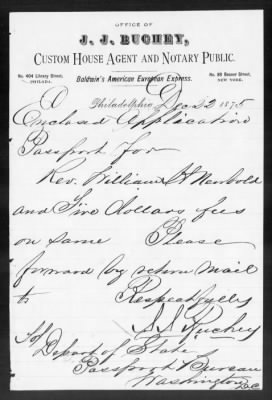 OFFICE OF
J. J. BUCHEY,
CUSTOM HOUSE AGENT AND NOTARY PUBLIC.
No. 404 Library Street,
PHILADA.
No. 80 Beaver Street,
NEW YORK.
Baldwin's American European Express.
Philadelphia Dec 22 1875
Enclosed Application
Passport for
Rev. William H Newbold
and Five dollars fees
on same Please
forward by return mail
to Respectfully
J J Buchey
To
Depart of State
Passport Bureau
Washington DC